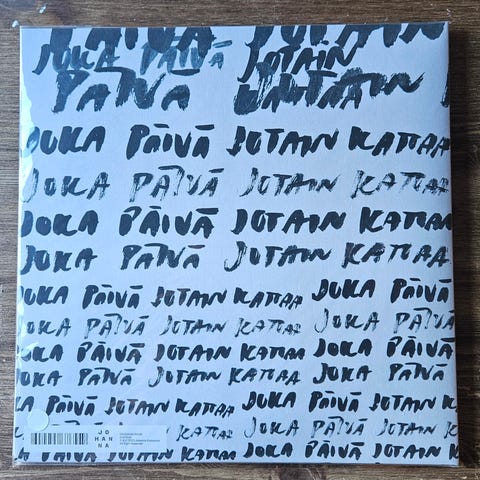 PÄIVÄ JOTAIN
JOKA PÄIVÄ JOTAIN
PÄIVÄ
JOKA PÄIVÄ JOTAIN KATTAA
JOKA PÄIVÄ JOTAIN KATTAA
JOKA PÄIVÄ JOTAIN KATTAA
JOKA PÄIVÄ JOTAIN KATTAA
JOKA PÄIVÄ JOTAIN KATTAA JOKA PÄIVÄ
JOKA PÄIVÄ JOTAIN KATTAA JOKA PÄIVÄ
JOKA PÄIVÄ JOTAIN KATTAA JOKA PÄIVÄ
JOKA PÄIVÄ JOTAIN KATTAA JOKA PÄIVÄ
JOKA PÄIVÄ JOTAIN KATTAA JOKA PÄIVÄ
JOKA PÄIVÄ JOTAIN KATTAA
JOKA PÄIVÄ JOTAIN KATTAA
JO
HAN
NA